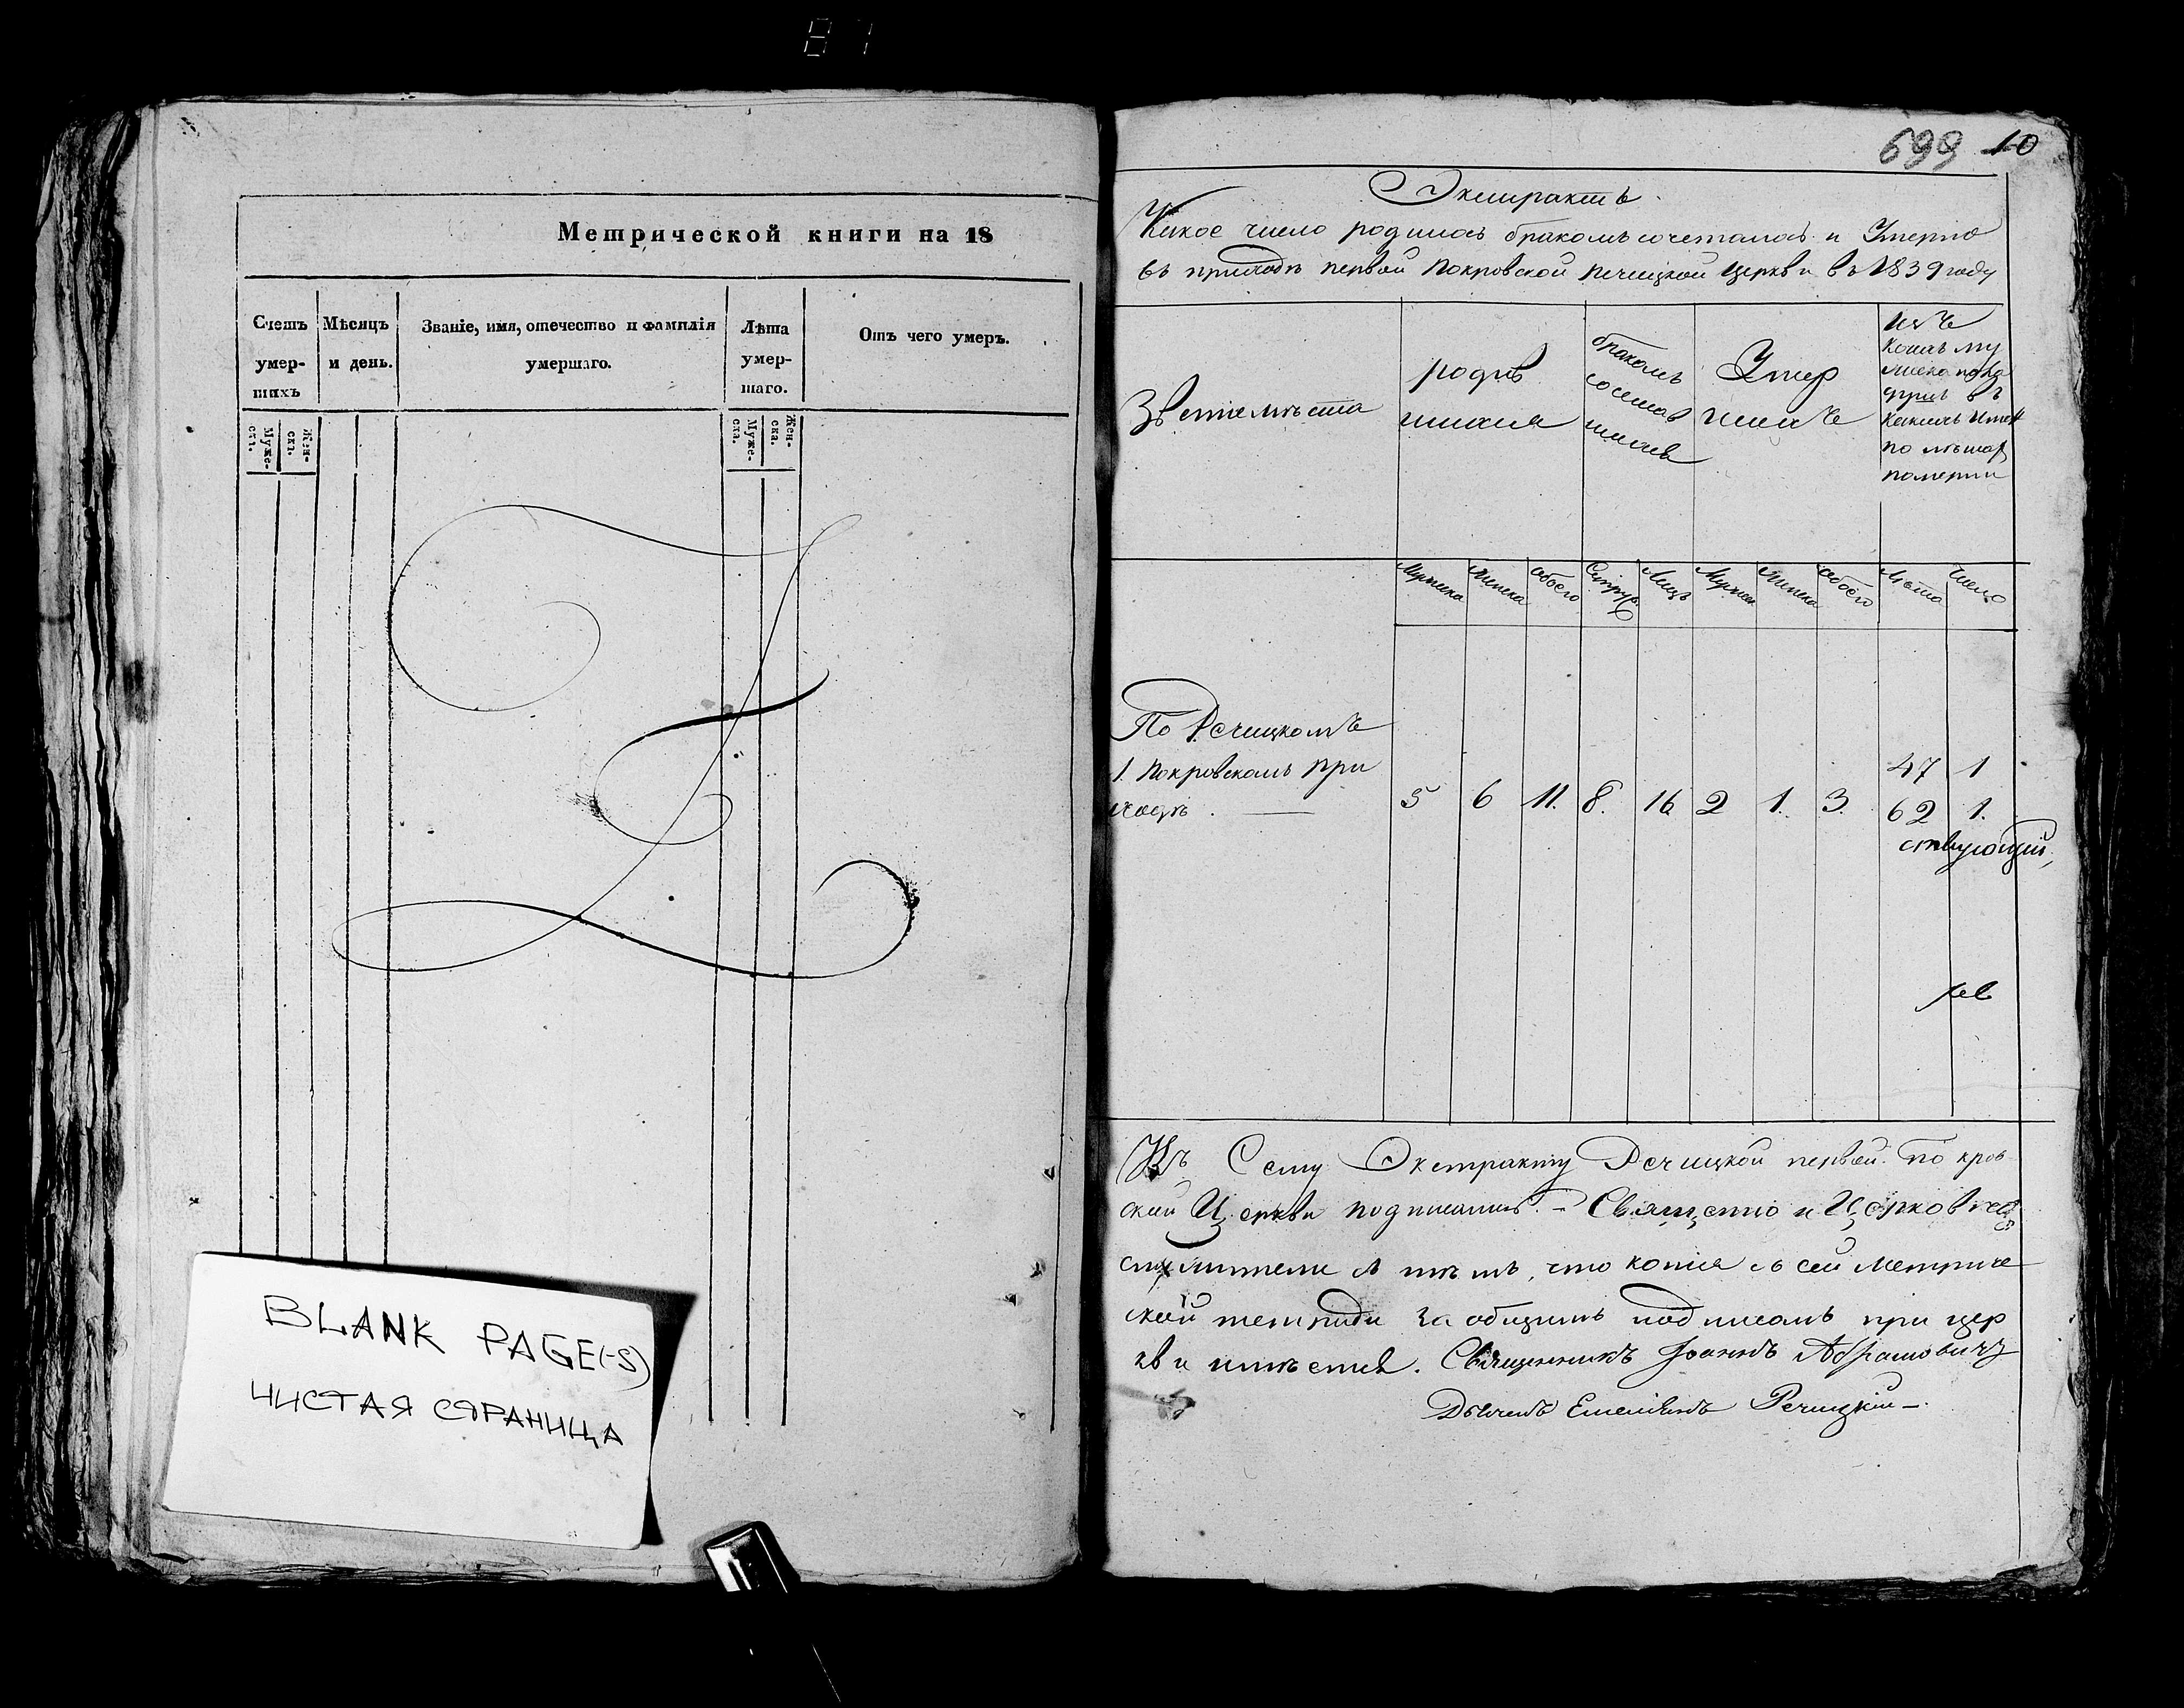 87
Метрической книги на 18
Счетъ умершихъ
Мѣсяцъ и день.
Званіе, имя, отечество и фамилія умершаго.
Лѣта умершаго.
Отъ чего умеръ.
Муже-ска.
Жен-ска.
Муже-ска.
Жен-ска.
BLANK PAGE(-S)
ЧИСТАЯ СТРАНИЦА
699 10
Экстрактъ.
Какое число родилось бракомъ сочеталось и Умерло
въ приходѣ первой Покровской Речицкой Церкви въ 1839 году
родив
шихся
бракомъ
сочетав
шихся
Умер
шихъ
Изъ
коихъ му
жеска пола
въ
какихъ
по лѣтах
померли
Мужеска
Женска
обоего
Супруж
Лицъ
Мужеск
Женска
обоего
Лѣта
Число
По Речицкомъ
1. Покровскомъ При
ходѣ.
5 6 11. 8. 16 2 1. 3.
47 1
62 1.
ствующій,
Къ Сему Экстракту Речицкой первой Покров
ской Церкви подписались. – Священно и Церковно
служители съ тѣмъ, что копія съ сей Метриче
ской тетради за общимъ подписомъ при цер
кви имѣется. Священникъ Іоаннъ Абрамовичъ
Дьячекъ Речицкій –.